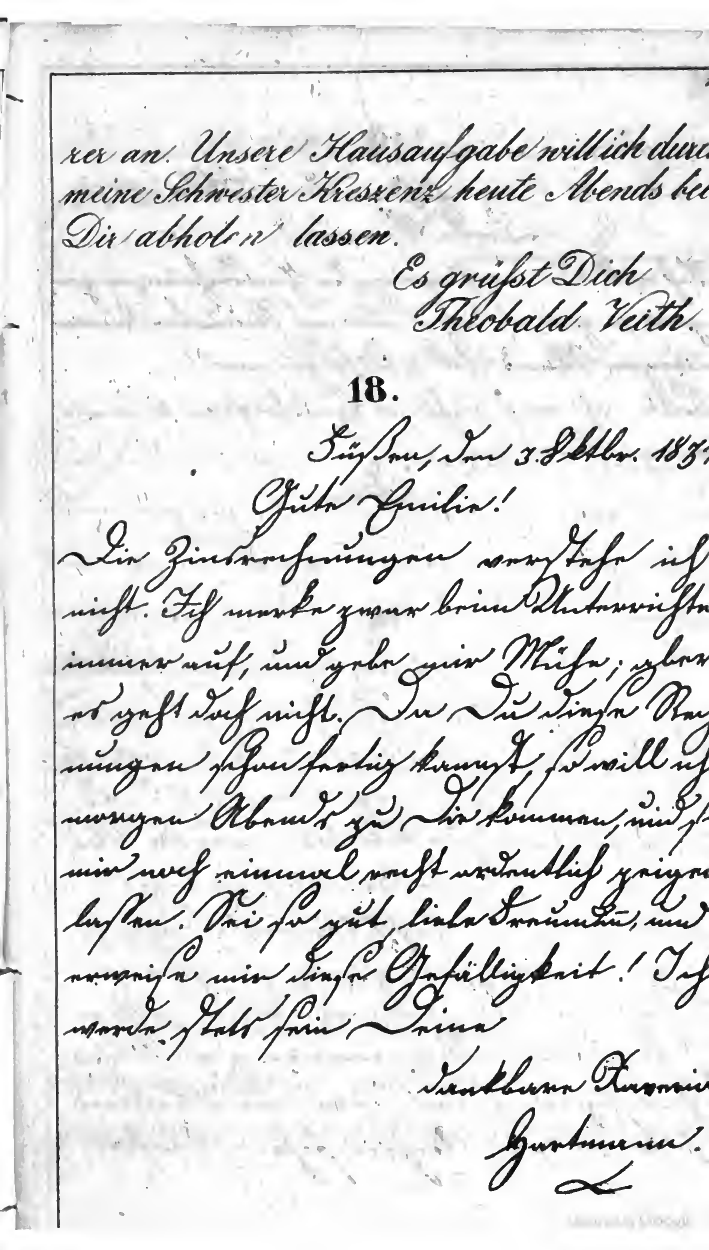 rer an. Unsere Hausaufgabe will ich durc
meine Schwester Kreszenz heute Abends bei
Dir abholen lassen.
Es grüßt Dich
Theobald Veith.
18.
Füßen, den 3. Oktbr. 183
Gute Emilie!
Die Zinsrechnungen verstehe ich
nicht. Ich merke zwar beim Unterrichte
immer auf, und gebe mir Mühe; aber
es geht doch nicht. Da Du diese Rech
nungen schon fertig kannst, so will ich
morgen Abends zu Dir kommen, und s
mir noch einmal recht ordentlich zeigen
lassen. Sei so gut, liebe Freundin, und
erweise mir diese Gefälligkeit! Ich
werde stets sein Deine
dankbare Xaveria
Hartmann.